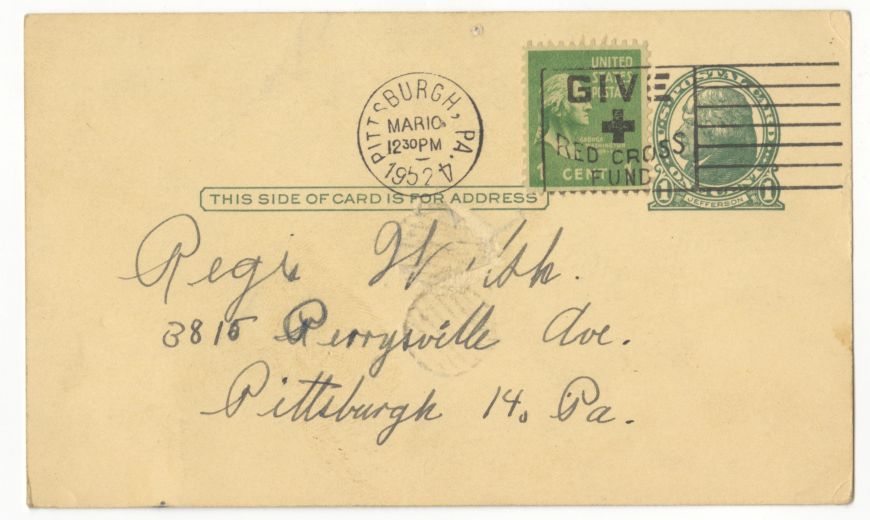 PITTSBURGH, PA. 4
MAR 10
12 30 PM
1952
UNITED
STATES
POSTAGE
GEORGE
WASHINGTON
1 CENT
GIVE
RED CROSS
FUND
U.S. POSTAL CARD
1 ONE CENT 1
JEFFERSON
THIS SIDE OF CARD IS FOR ADDRESS
Regis
3815 Perrysville Ave.
Pittsburgh 14. Pa.